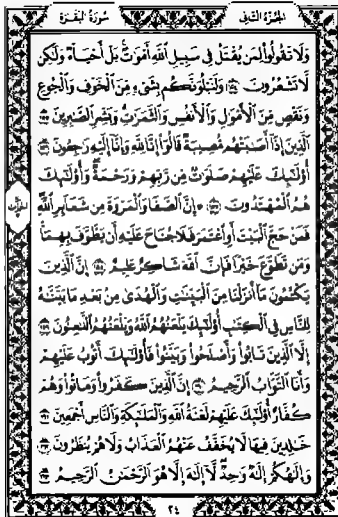 الجزء الثاني
سورة البقرة
ولا تقولوا لمن يقتل في سبيل الله أموت بل أحياء ولكن
لا تشعرون ١٥٤ ولنبلونكم بشيء من الخوف والجوع
ونقص من الأمول والأنفس والثمرت وبشر الصبرين ١٥٥
الذين إذا أصبتهم مصيبة قالوا إنا لله وإنا إليه رجعون ١٥٦
أولئك عليهم صلوت من ربهم ورحمة وأولئك
هم المهتدون ١٥٧ ۞ إن الصفا والمروة من شعائر الله
فمن حج البيت أو اعتمر فلا جناح عليه أن يطوف بهما
ومن تطوع خيرا فإن الله شاكر عليم ١٥٨ إن الذين
يكتمون ما أنزلنا من البينت والهدى من بعد ما بينه
للناس في الكتب أولئك يلعنهم الله ويلعنهم اللعنون ١٥٩
إلا الذين تابوا وأصلحوا وبينوا فأولئك أتوب عليهم
وأنا التواب الرحيم ١٦٠ إن الذين كفروا وماتوا وهم
كفار أولئك عليهم لعنة الله والملئكة والناس أجمعين ١٦١
خلدين فيها لا يخفف عنهم العذاب ولا هم ينظرون ١٦٢
وإلهكم إله وحد لا إله إلا هو الرحمن الرحيم ١٦٣
٢٤